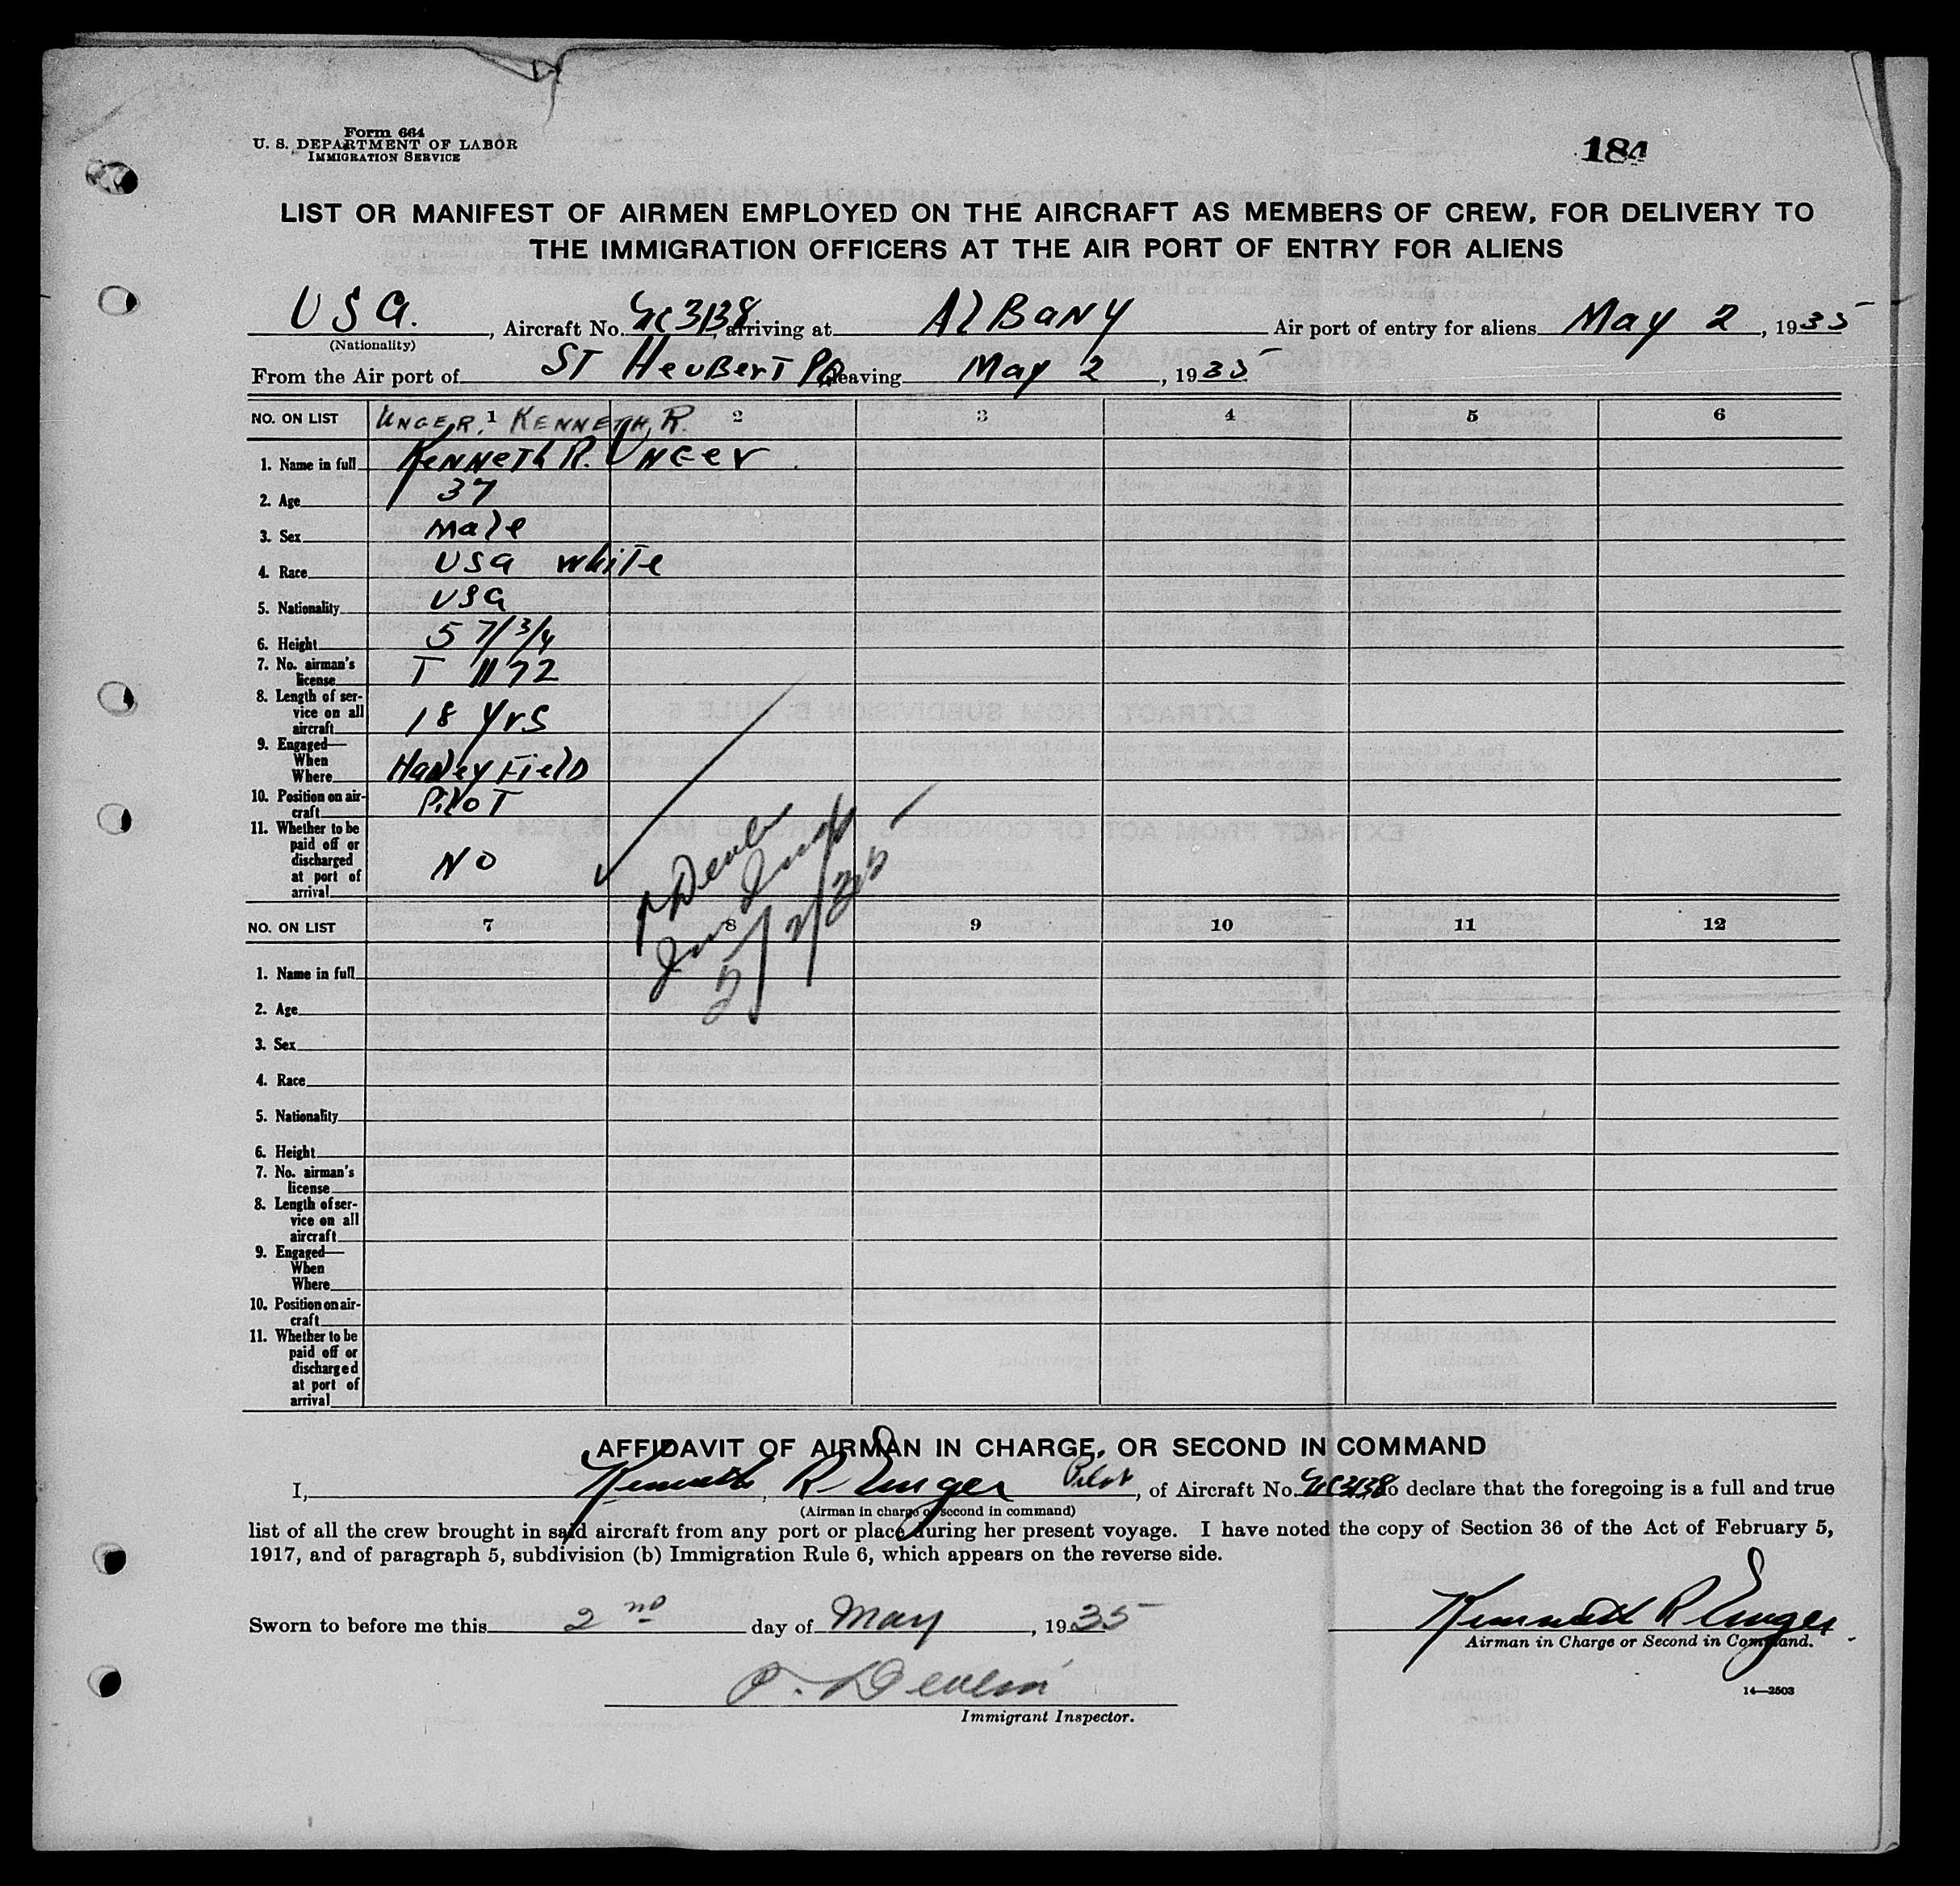 Form 664
U. S. DEPARTMENT OF LABOR
IMMIGRATION SERVICE
184
LIST OR MANIFEST OF AIRMEN EMPLOYED ON THE AIRCRAFT AS MEMBERS OF CREW, FOR DELIVERY TO
THE IMMIGRATION OFFICERS AT THE AIR PORT OF ENTRY FOR ALIENS
USA. , Aircraft No. arriving at AlBany Air port of entry for aliens May 2, 1935
(Nationality)
From the Air port of ST HeuBerT PQ leaving May 2, 1935
NO. ON LIST 1 UNGER, KENNETH R. 2 3 4 5 6
1. Name in full Kenneth R. Unger
2. Age 37
3. Sex Male
4. Race USA white
5. Nationality USA
6. Height 5 7/3/4
7. No. airman's license T 1172
8. Length of service on all aircraft 18 Yrs
9. Engaged—
When
Where Hadley Field
10. Position on aircraft Pilot
11. Whether to be paid off or discharged at port of arrival No
P Devlin
Imm Insp
5/2/35
NO. ON LIST 7 8 9 10 11 12
1. Name in full
2. Age
3. Sex
4. Race
5. Nationality
6. Height
7. No. airman's license
8. Length of service on all aircraft
9. Engaged—
When
Where
10. Position on aircraft
11. Whether to be paid off or discharged at port of arrival
AFFIDAVIT OF AIRMAN IN CHARGE, OR SECOND IN COMMAND
I, Kenneth R Unger Pilot, of Aircraft No. do declare that the foregoing is a full and true
(Airman in charge or second in command)
list of all the crew brought in said aircraft from any port or place during her present voyage. I have noted the copy of Section 36 of the Act of February 5,
1917, and of paragraph 5, subdivision (b) Immigration Rule 6, which appears on the reverse side.
Sworn to before me this 2nd day of May, 1935
Kenneth R Unger
Airman in Charge or Second in Command.
P. Devlin
Immigrant Inspector.
14—2503